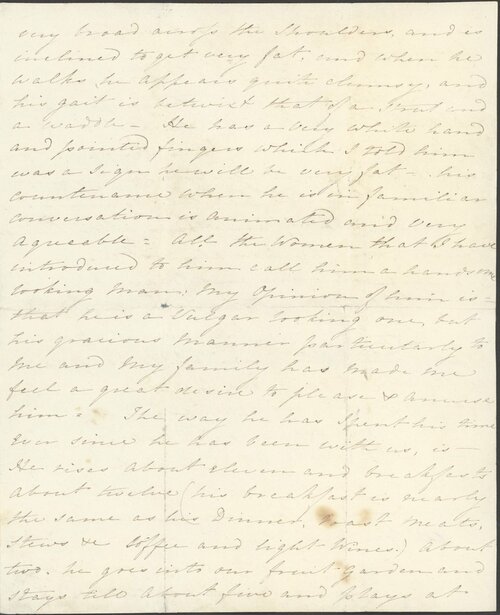 very broad across the Shoulders, and is
inclined to get very fat, and when he
walks he appears quite clumsy, and
his gait is betwixt that of a Trut and
a waddle - He has a very white hand
and pointed fingers which I told him
was a Sign he will be very fat - his
countenance when he is in familiar
conversation is animated and very
agreeable = All the Women that I have
introduced to him call him a handsome
looking Man: My Opinion of him is -
that he is a Vulgar looking one, but
his gracious manner particularly to
me and my family has made me
feel a great desire to please & amuse
him = The way he has Spent his time
Ever since he has been with us, is -
He rises about Eleven and breakfasts
about twelve (his breakfast is nearly
the same as his Dinner, roast meats,
Stews &c Coffee and light Wines.) About
two he goes into our fruit garden and
Stays till about five and plays at